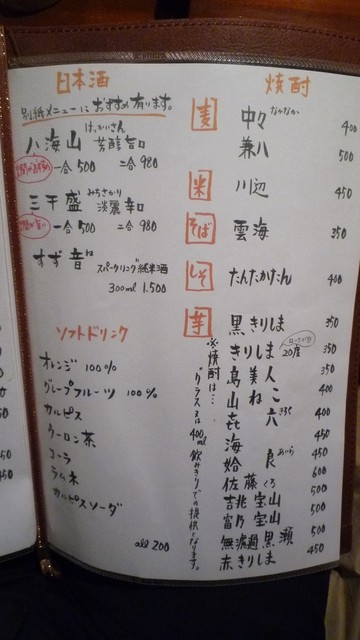 日本酒
別紙メニューにおすすめ有ります。
はっかいさん
八海山 芳醇旨口
一合 500 二合 980
みちさかり
三千盛 淡麗辛口
一合 500 二合 980
すず音
スパークリング純米酒
300ml 1.500
ソフトドリンク
オレンジ 100%
グレープフルーツ 100%
カルピス
ウーロン茶
コーラ
ラムネ
カルピスソーダ
all 200
焼酎
麦
中々 なかなか 400
兼八 500
米
川辺 450
そば
雲海 350
しそ
たんたかたん 400
芋
黒きりしま 350
きりしま 20度 350
島美人 350
山ねこ 400
㐂六 400
海 450
姶良 あいら 450
佐藤 くろ 600
吉兆宝山 500
富乃宝山 500
無濾過黒瀬 500
赤きりしま 450
※焼酎は…
グラス又は400ml飲みきりでの提供となります。